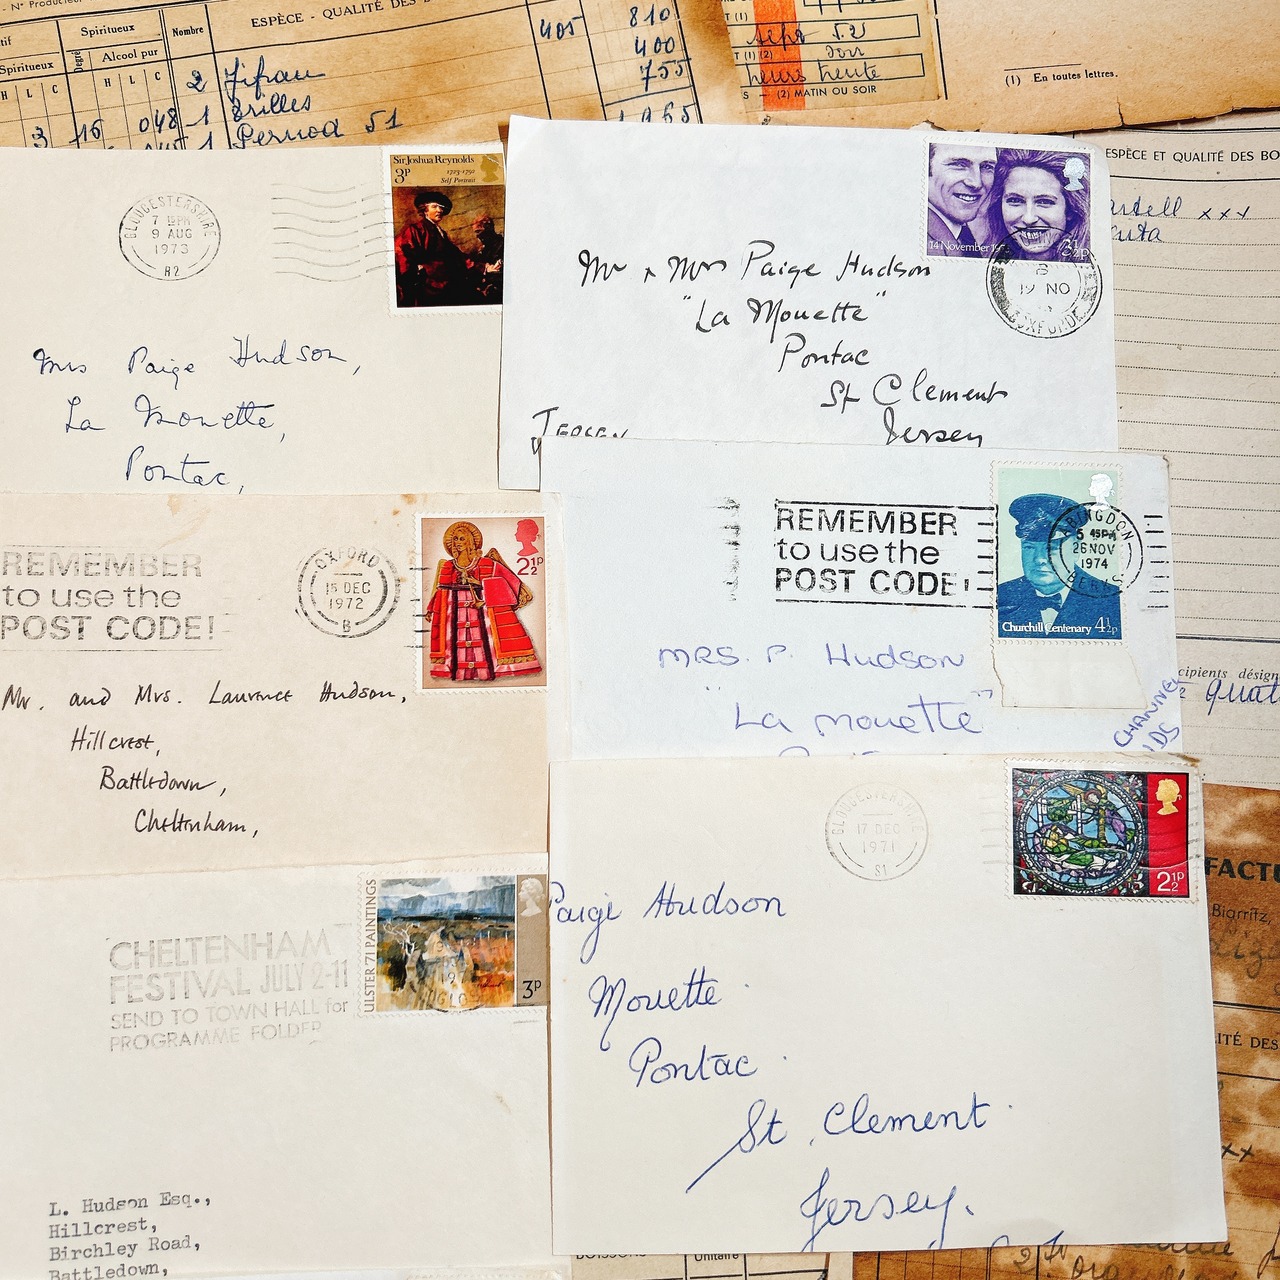 N° Producteur
ESPÈCE - QUALITÉ DES
Spiritueux
Nombre
Spiritueux
Degré
Alcool pur
H L C
H L C
405 810
400
755
2
1 Brilles
3 16 048 1 Pernod 51
1965
T (1)
T (1) (2)
sept 52
soir
heurs trente
S — (2) MATIN OU SOIR
(1) En toutes lettres.
ESPÈCE ET QUALITÉ DES BO
artell xxx
GLOUCESTERSHIRE
7 15PM
9 AUG
1973
R2
Sir Joshua Reynolds
3P
1723-1792
Self Portrait
Mrs Paige Hudson,
La Mouette,
Pontac,
14 November
3½p
19 NO
Mr & Mrs Paige Hudson
"La Mouette"
Pontac
St Clement
Jersey
JERSEY
REMEMBER
to use the
POST CODE!
OXFORD
15 DEC
1972
B
2½P
Mr. and Mrs. Laurence Hudson,
Hillcrest,
Battledown,
Cheltenham,
REMEMBER
to use the
POST CODE!
ABINGDON
5 45PM
26 NOV
1974
BERKS
Churchill Centenary 4½p
MRS. P. Hudson
"La Mouette"
CHANNEL
IDS
cipients désign
quat
CHELTENHAM
FESTIVAL JULY 2-11
SEND TO TOWN HALL for
PROGRAMME FOLDER
ULSTER '71 PAINTINGS
3P
L. Hudson Esq.,
Hillcrest,
Birchley Road,
Battledown,
GLOUCESTERSHIRE
17 DEC
1971
S1
2½P
Paige Hudson
Mouette
Pontac
St Clement
Jersey.
FACTU
Biarritz,
ITÉ DES
xx
Unitaire